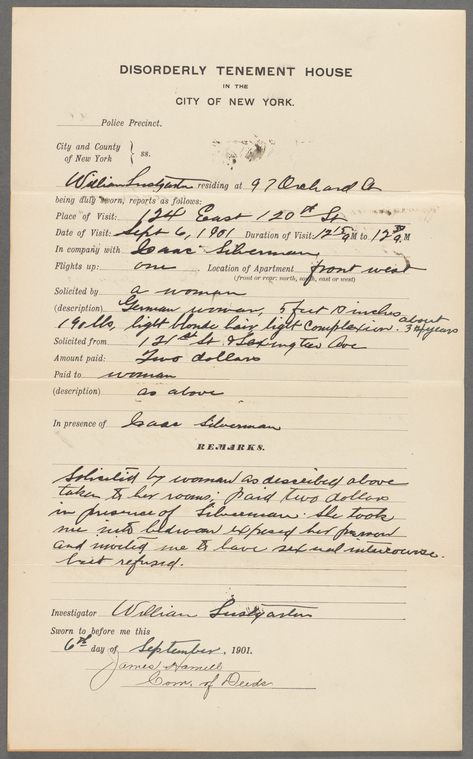 DISORDERLY TENEMENT HOUSE
IN THE
CITY OF NEW YORK.
Police Precinct.
City and County
of New York } ss.
William Lustgarten residing at 97 Orchard
being duly sworn, reports as follows:
Place of Visit: 124 East 120th St
Date of Visit: Sept 6, 1901 Duration of Visit: 12 15 A M to 12 30 A. M
In company with Isaac Silverman
Flights up: one Location of Apartment front west
(front or rear: north, south, east or west)
Solicited by a woman
(description) German woman, 5 feet 10 inches about
190 lbs, light blonde hair, light complexion. 34 years
Solicited from 121st St & Lexington Ave
Amount paid: Two dollars
Paid to woman
(description) as above
In presence of Isaac Silverman
REMARKS.
Solicited by woman as described above
taken to her rooms, paid two dollars
in presence of Silverman. She took
me into bedroom exposed her person
and invited me to have sexual intercourse.
but refused.
Investigator William Lustgarten
Sworn to before me this
6th day of September, 1901.
James Hamill
Com. of Deeds